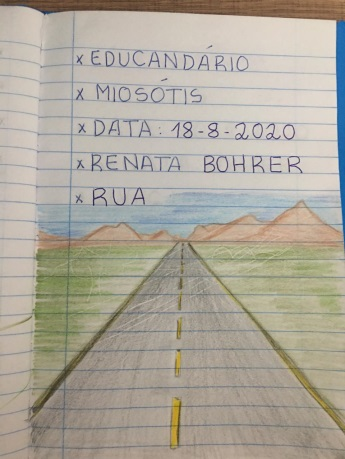 x EDUCANDÁRIO
x MIOSÓTIS
x DATA: 18-8-2020
x RENATA BOHRER
x RUA